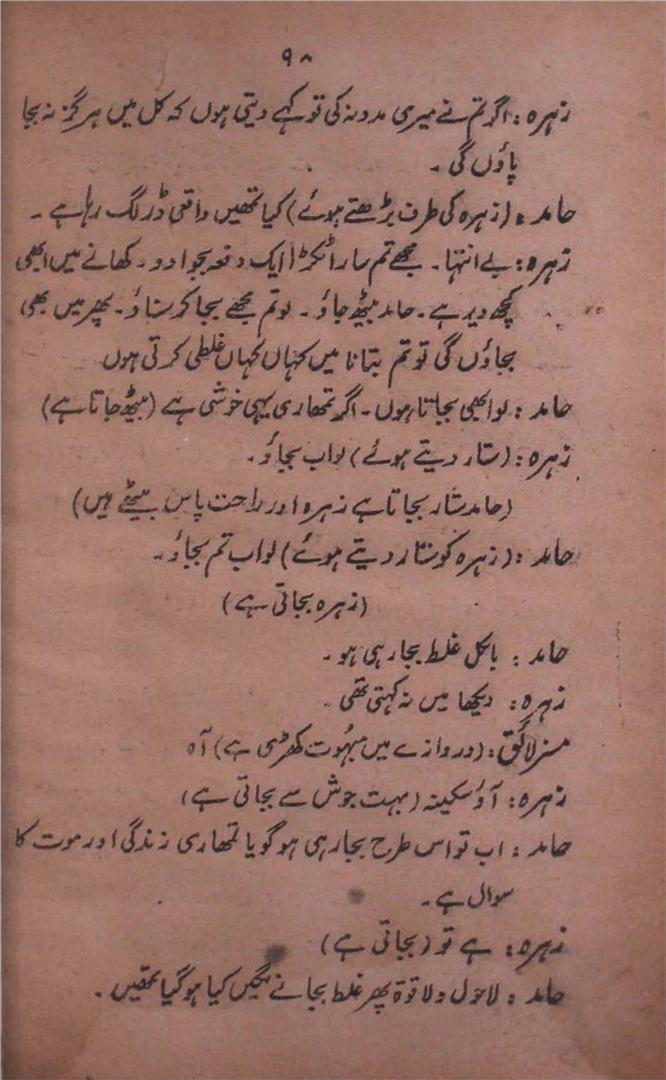 ۹۸
زہرہ : اگر تم نے میری مدد نہ کی تو کہے دیتی ہوں کہ کل میں ہرگز نہ بجا
پاؤں گی ۔
حامد : (زہرہ کی طرف بڑھتے ہوئے) کیا تمھیں واقعی ڈر لگ رہا ہے ۔
زہرہ : بے انتہا ۔ مجھے تم سارا ٹکڑا ایک دفعہ بجوا دو ۔ کھانے میں ابھی
کچھ دیر ہے ۔ حامد بیٹھ جاؤ ۔ لو تم مجھے بجا کر سناؤ ۔ پھر میں بھی
بجاؤں گی تو تم بتانا میں کہاں کہاں غلطی کرتی ہوں
حامد : لو ابھی بجاتا ہوں ۔ اگر تمھاری یہی خوشی ہے (بیٹھ جاتا ہے)
زہرہ : (ستار دیتے ہوئے) لو اب بجاؤ ۔
(حامد ستار بجاتا ہے زہرہ اور راحت پاس بیٹھے ہیں)
حامد : (زہرہ کو ستار دیتے ہوئے) لو اب تم بجاؤ ۔
(زہرہ بجاتی ہے)
حامد : بالکل غلط بجا رہی ہو ۔
زہرہ : دیکھا میں نہ کہتی تھی ۔
مسز لائق : (دروازے میں مبہُوت کھڑی ہے) آہ
زہرہ : آؤ سکینہ (بہت جوش سے بجاتی ہے)
حامد : اب تو اس طرح بجا رہی ہو گویا تمھاری زندگی اور موت کا
سوال ہے ۔
زہرہ : ہے تو (بجاتی ہے)
حامد : لاحول ولا قوۃ پھر غلط بجانے لگیں کیا ہو گیا تمھیں ۔